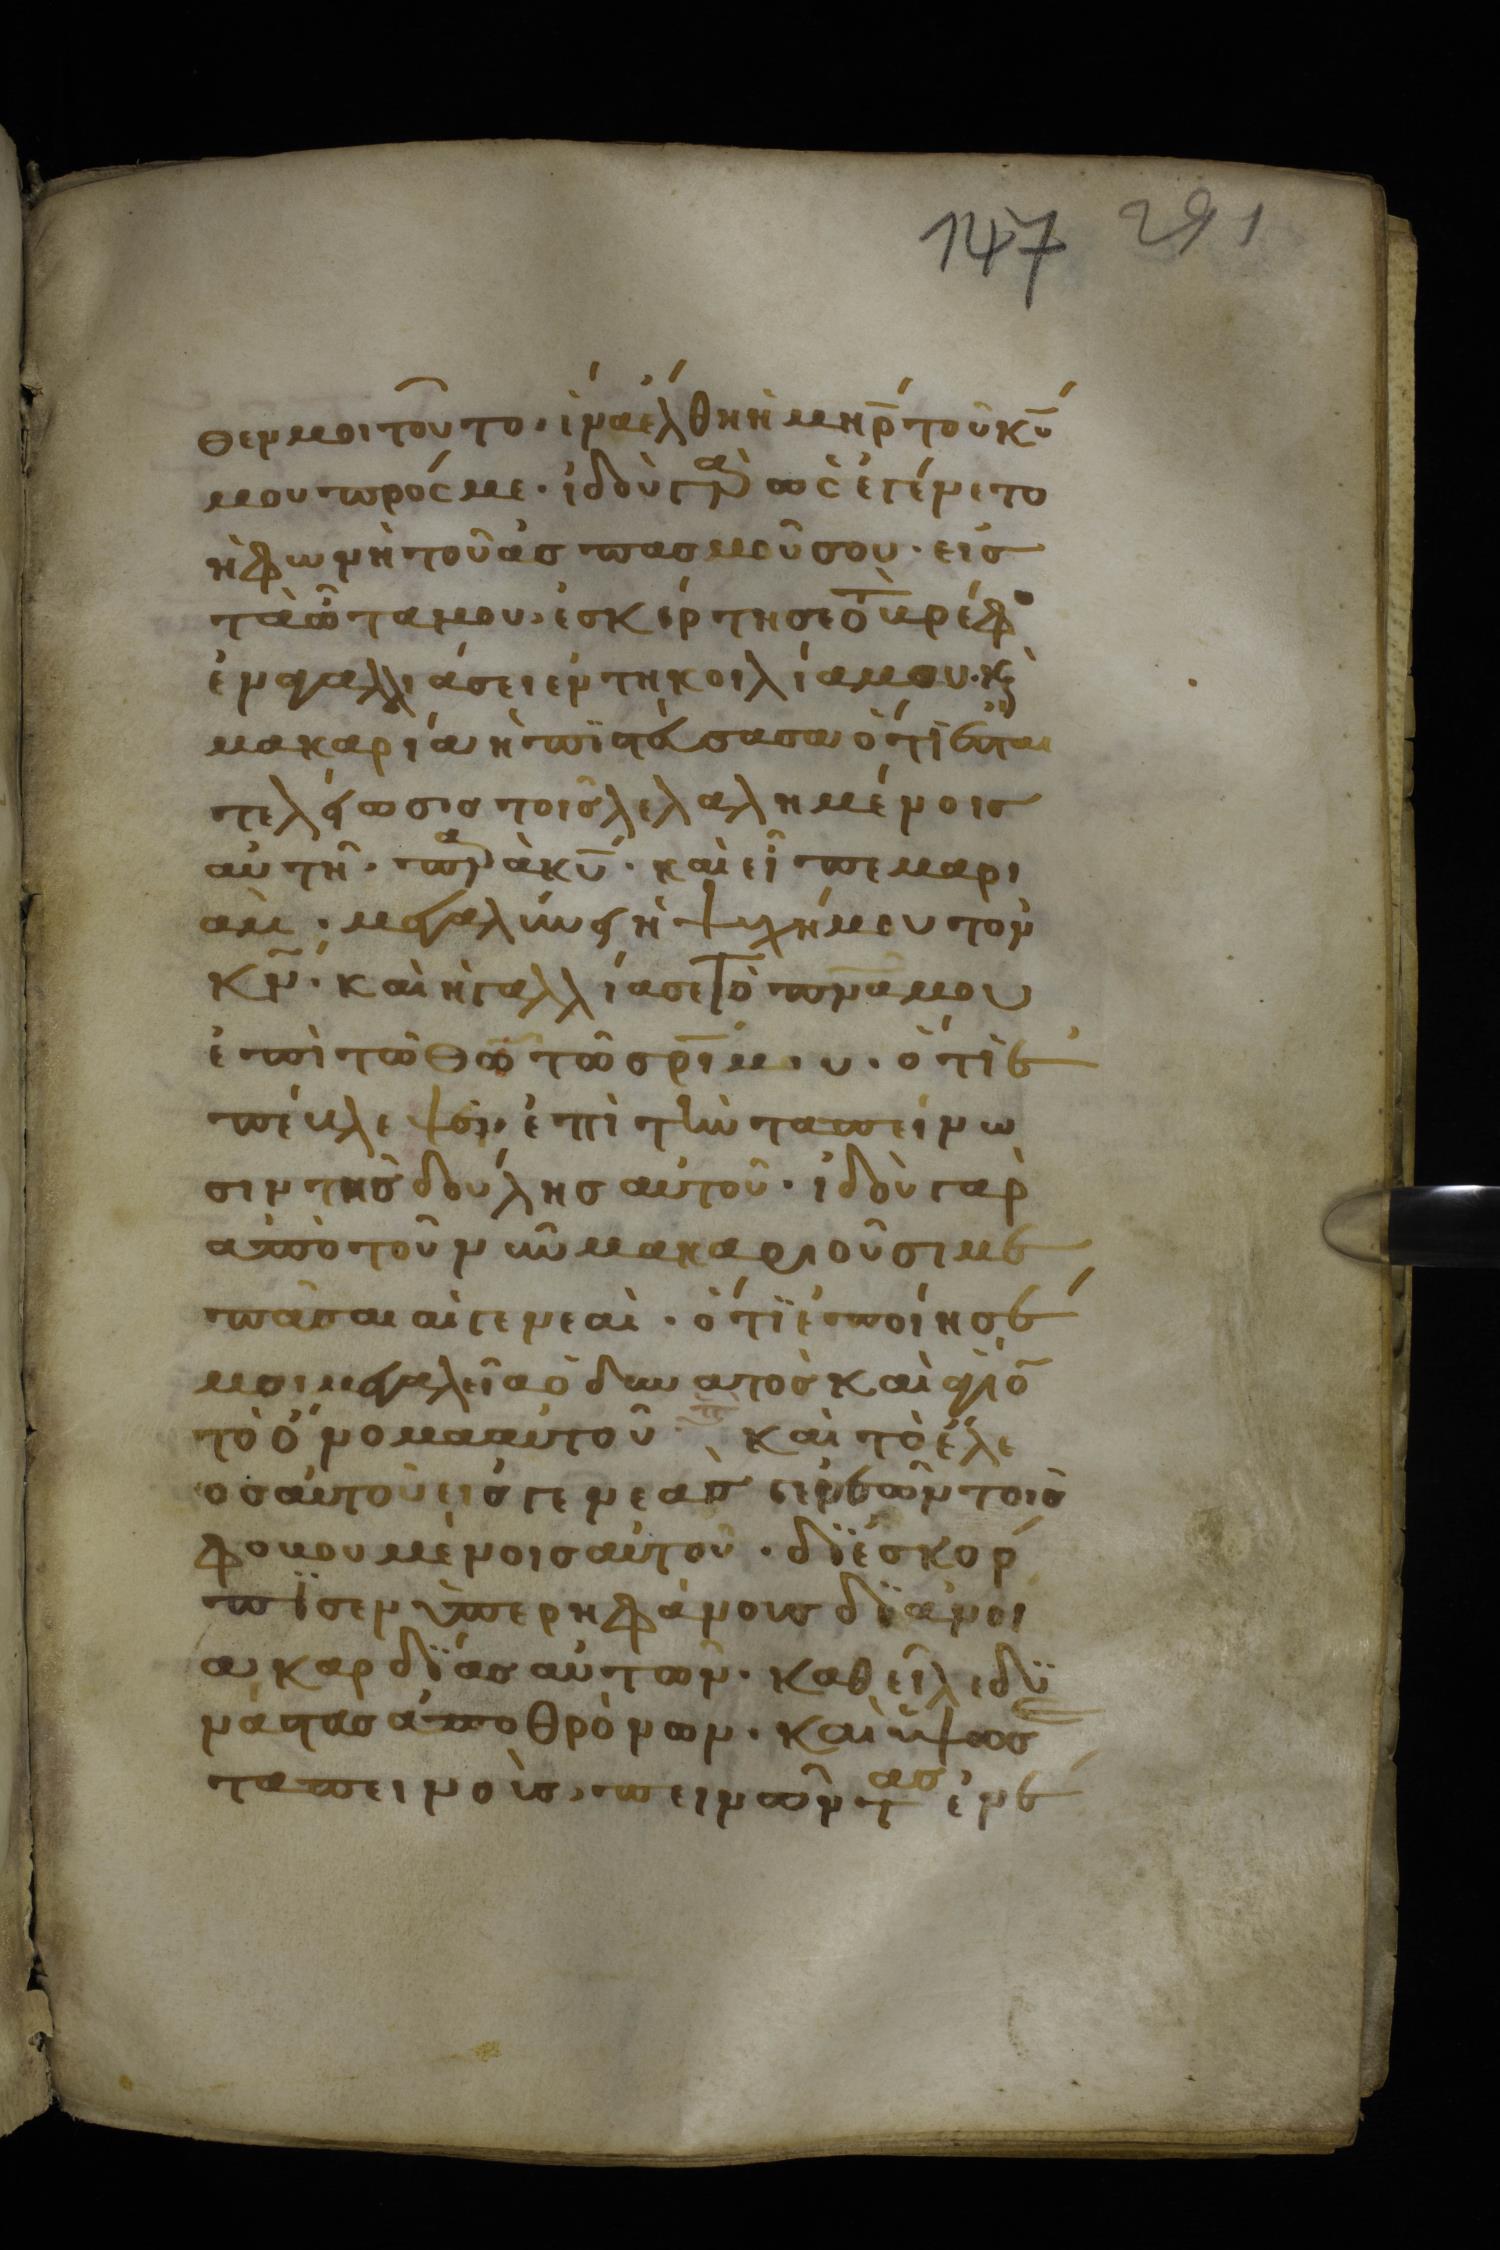 147 291
θεν μοι τοῦτο· ἵνα ἔλθη ἡ μηρ̅ τοῦ κυ̅
μου πρός με· ἰδοὺ γὰρ ὡς ἐγένετο
ἡ φωνὴ τοῦ ἀσπασμοῦ σου· εἰς
τὰ ὦτα μου, ἐσκίρτησε τὸ βρέφ
ἐν ἀγαλλιάσει ἐν τη κοιλία μου· κ(αὶ)
μακαρία ἡ πϊστεύσασα ὅτϊ ἔσται
τελείωσις τοῖς λελαλημένοις
αὐτῆ· παρὰ κυ̅· καὶ εἶπε μαρι
ὰμ· μεγαλύνει ἡ ψυχή μου τὸν
κν̅· καὶ ἠγαλλίασε τὸ πνα̅ μου
ἐπὶ τῶ θῶ̅ τῶ σρ̅ι μου· ὅτι ἐ
πέβλεψεν ἐπὶ τὴν ταπείνω
σιν τῆς δούλης αὐτοῦ· ἰδοὺ γὰρ
ἀπὸ τοῦ νῦν μακαριοῦσι με
πᾶσαι αἱ γενεαὶ· ὅτϊ ἐποίησέ
μοι μεγαλεῖα ὁ δυνατὸς καὶ ἅγιο̅
τὸ ὄνομα αὐτοῦ· καὶ τὸ ἔλε
ος αὐτοῦ εἰς γενεὰς γενεῶν τοῖς
φοβουμένοις αὐτοῦ· δϊεσκόρ
πϊσεν ὑπερηφάνους δϊανοί
α καρδϊας αὐτῶν· καθεῖλε δυ
νάστας ἀπὸ θρόνων· καὶ ὕψωσε
ταπεινοὺς, πεινῶντας ἐνέ